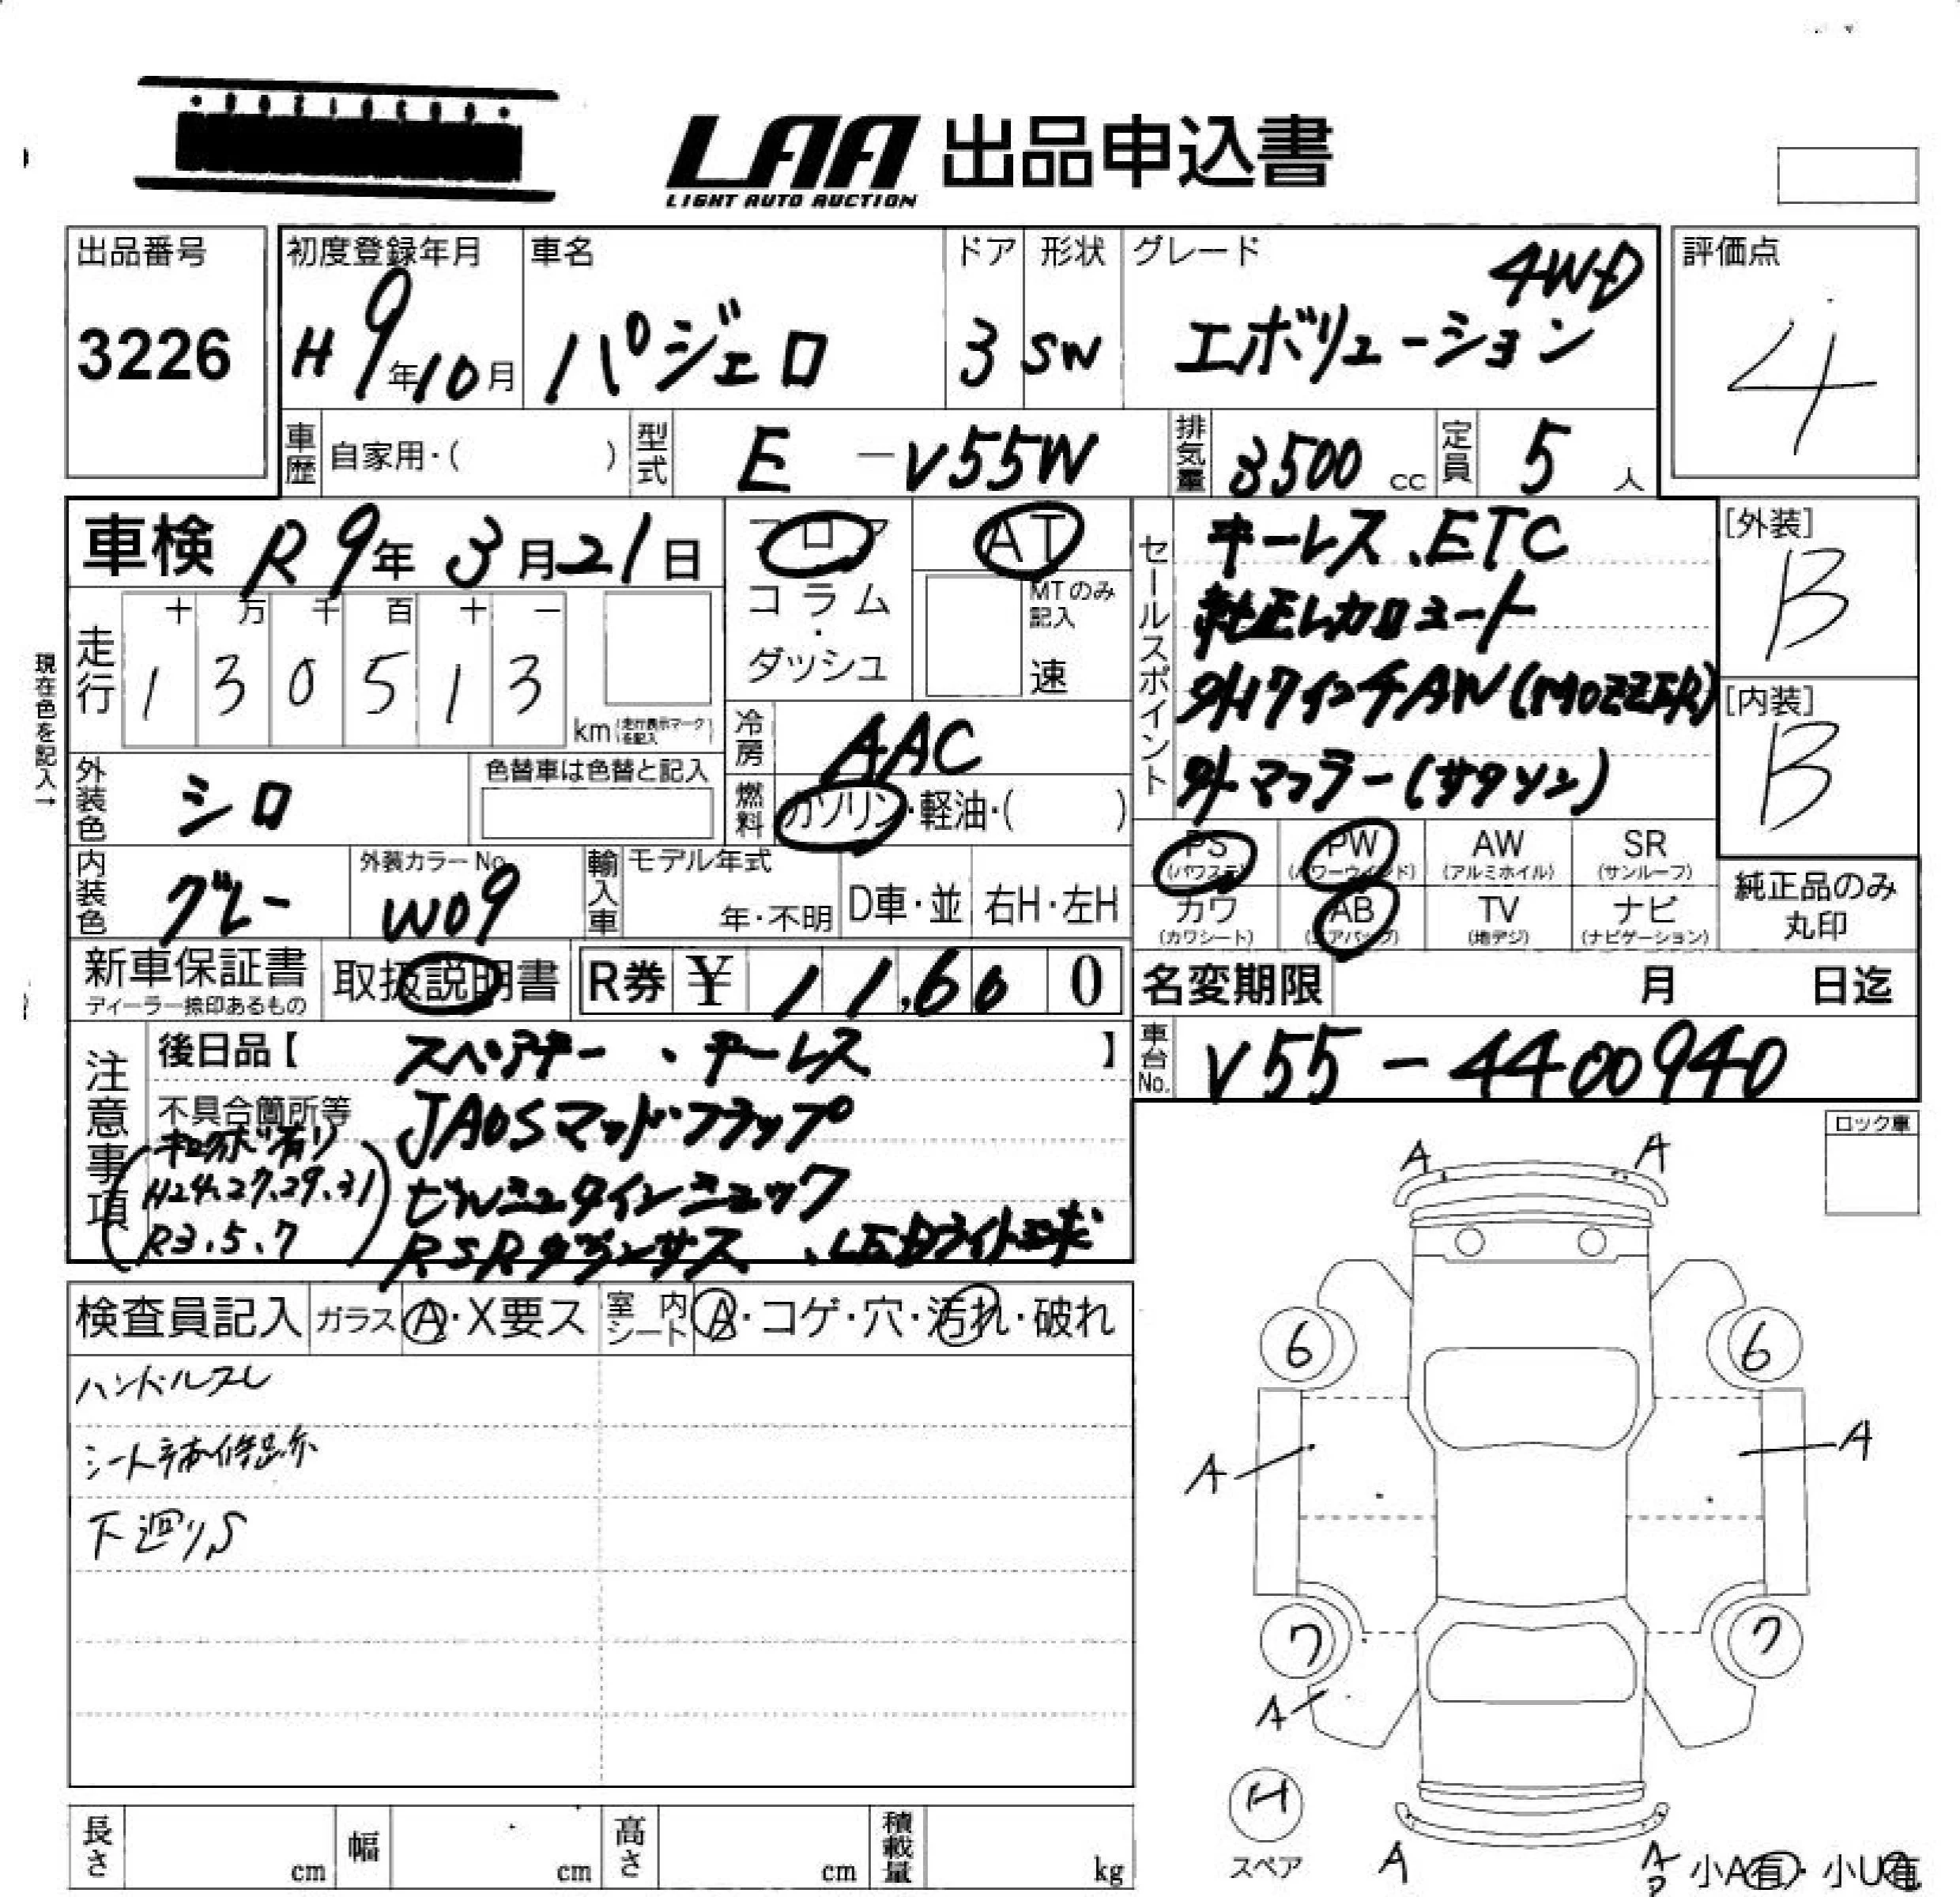 LAA 出品申込書
LIGHT AUTO AUCTION
出品番号
3226
初度登録年月
H9年10月
車名
パジェロ
ドア
3
形状
SW
グレード
4WD
エボリューション
評価点
4
車歴
自家用・( )
型式
E-V55W
排気量
3500cc
定員
5人
車検 R9年3月21日
フロア
コラム・ダッシュ
AT
MTのみ記入
速
セールスポイント
キーレス、ETC
純正レカロシート
外17インチAW(MOZZER)
外マフラー(サクソン)
[外装]
B
[内装]
B
現在色を記入→
走行
十 万 千 百 十 一
1 3 0 5 1 3
km(走行表示マークを記入)
冷房
AAC
外装色
シロ
色替車は色替と記入
燃料
ガソリン・軽油・( )
内装色
グレー
外装カラーNo.
W09
輸入車
モデル年式
年・不明
D車・並
右H・左H
PS
(パワステ)
PW
(パワーウインド)
AW
(アルミホイル)
SR
(サンルーフ)
カワ
(カワシート)
AB
(エアバッグ)
TV
(地デジ)
ナビ
(ナビゲーション)
純正品のみ
丸印
新車保証書
ディーラー捺印あるもの
取扱説明書
R券 ¥ 11,600
名変期限 月 日迄
車台No.
V55-4400940
注意事項
後日品【 スペアキー・キーレス 】
不具合箇所等
JAOSマッドフラップ
キロクボ有り
H24.27.29.31
R3.5.7
ビルシュタインショック
RSRダウンサス、LEDライト球
ロック車
検査員記入
ガラス
A・X要ス
室内シート
A・コゲ・穴・汚れ・破れ
ハンドルスレ
シート補修跡
下廻りS
A
A
6
6
A
A
7
7
A
H
スペア
A
A
小A有・小U有
長さ
cm
幅
cm
高さ
cm
積載量
kg